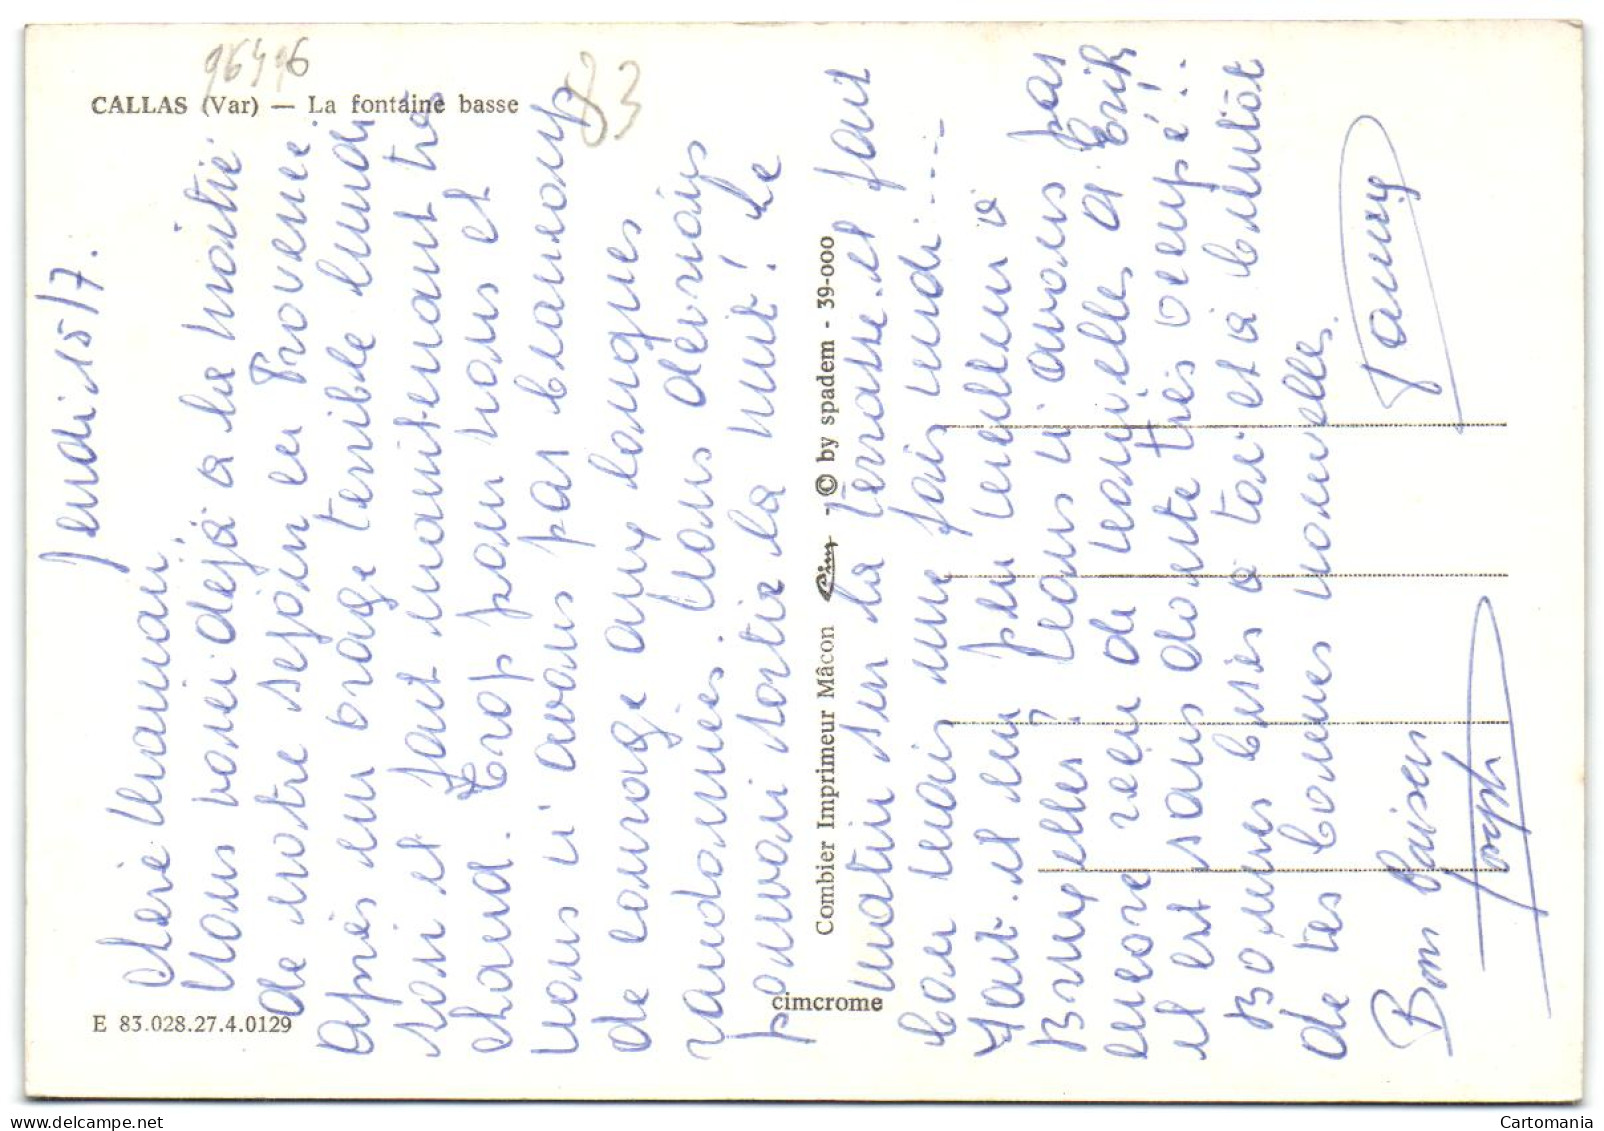 96496
83
CALLAS (Var) — La fontaine basse
Jeudi 15/7.
Chère Maman,
Nous voici déjà à la moitié
de notre séjour en Provence.
Après un orage terrible lundi
soir il fait maintenant très
chaud. Trop pour nous et
nous n'avons pas beaucoup
de courage aux longues
randonnées. Nous devrions
pouvoir sortir la nuit! Le
matin sur la terrasse il fait
bon mais une fois midi....
Fait-il un peu meilleur à
Bruxelles? Nous n'avons pas
encore reçu de nouvelles d'Erik
il est sans doute très occupé!!
Bonnes bises à toi et à bientôt
de tes bonnes nouvelles.
Fanny
Bons baisers
Joseph
Combier Imprimeur Mâcon - Cim - © by spadem - 39-000
cimcrome
E 83.028.27.4.0129
Cartomania